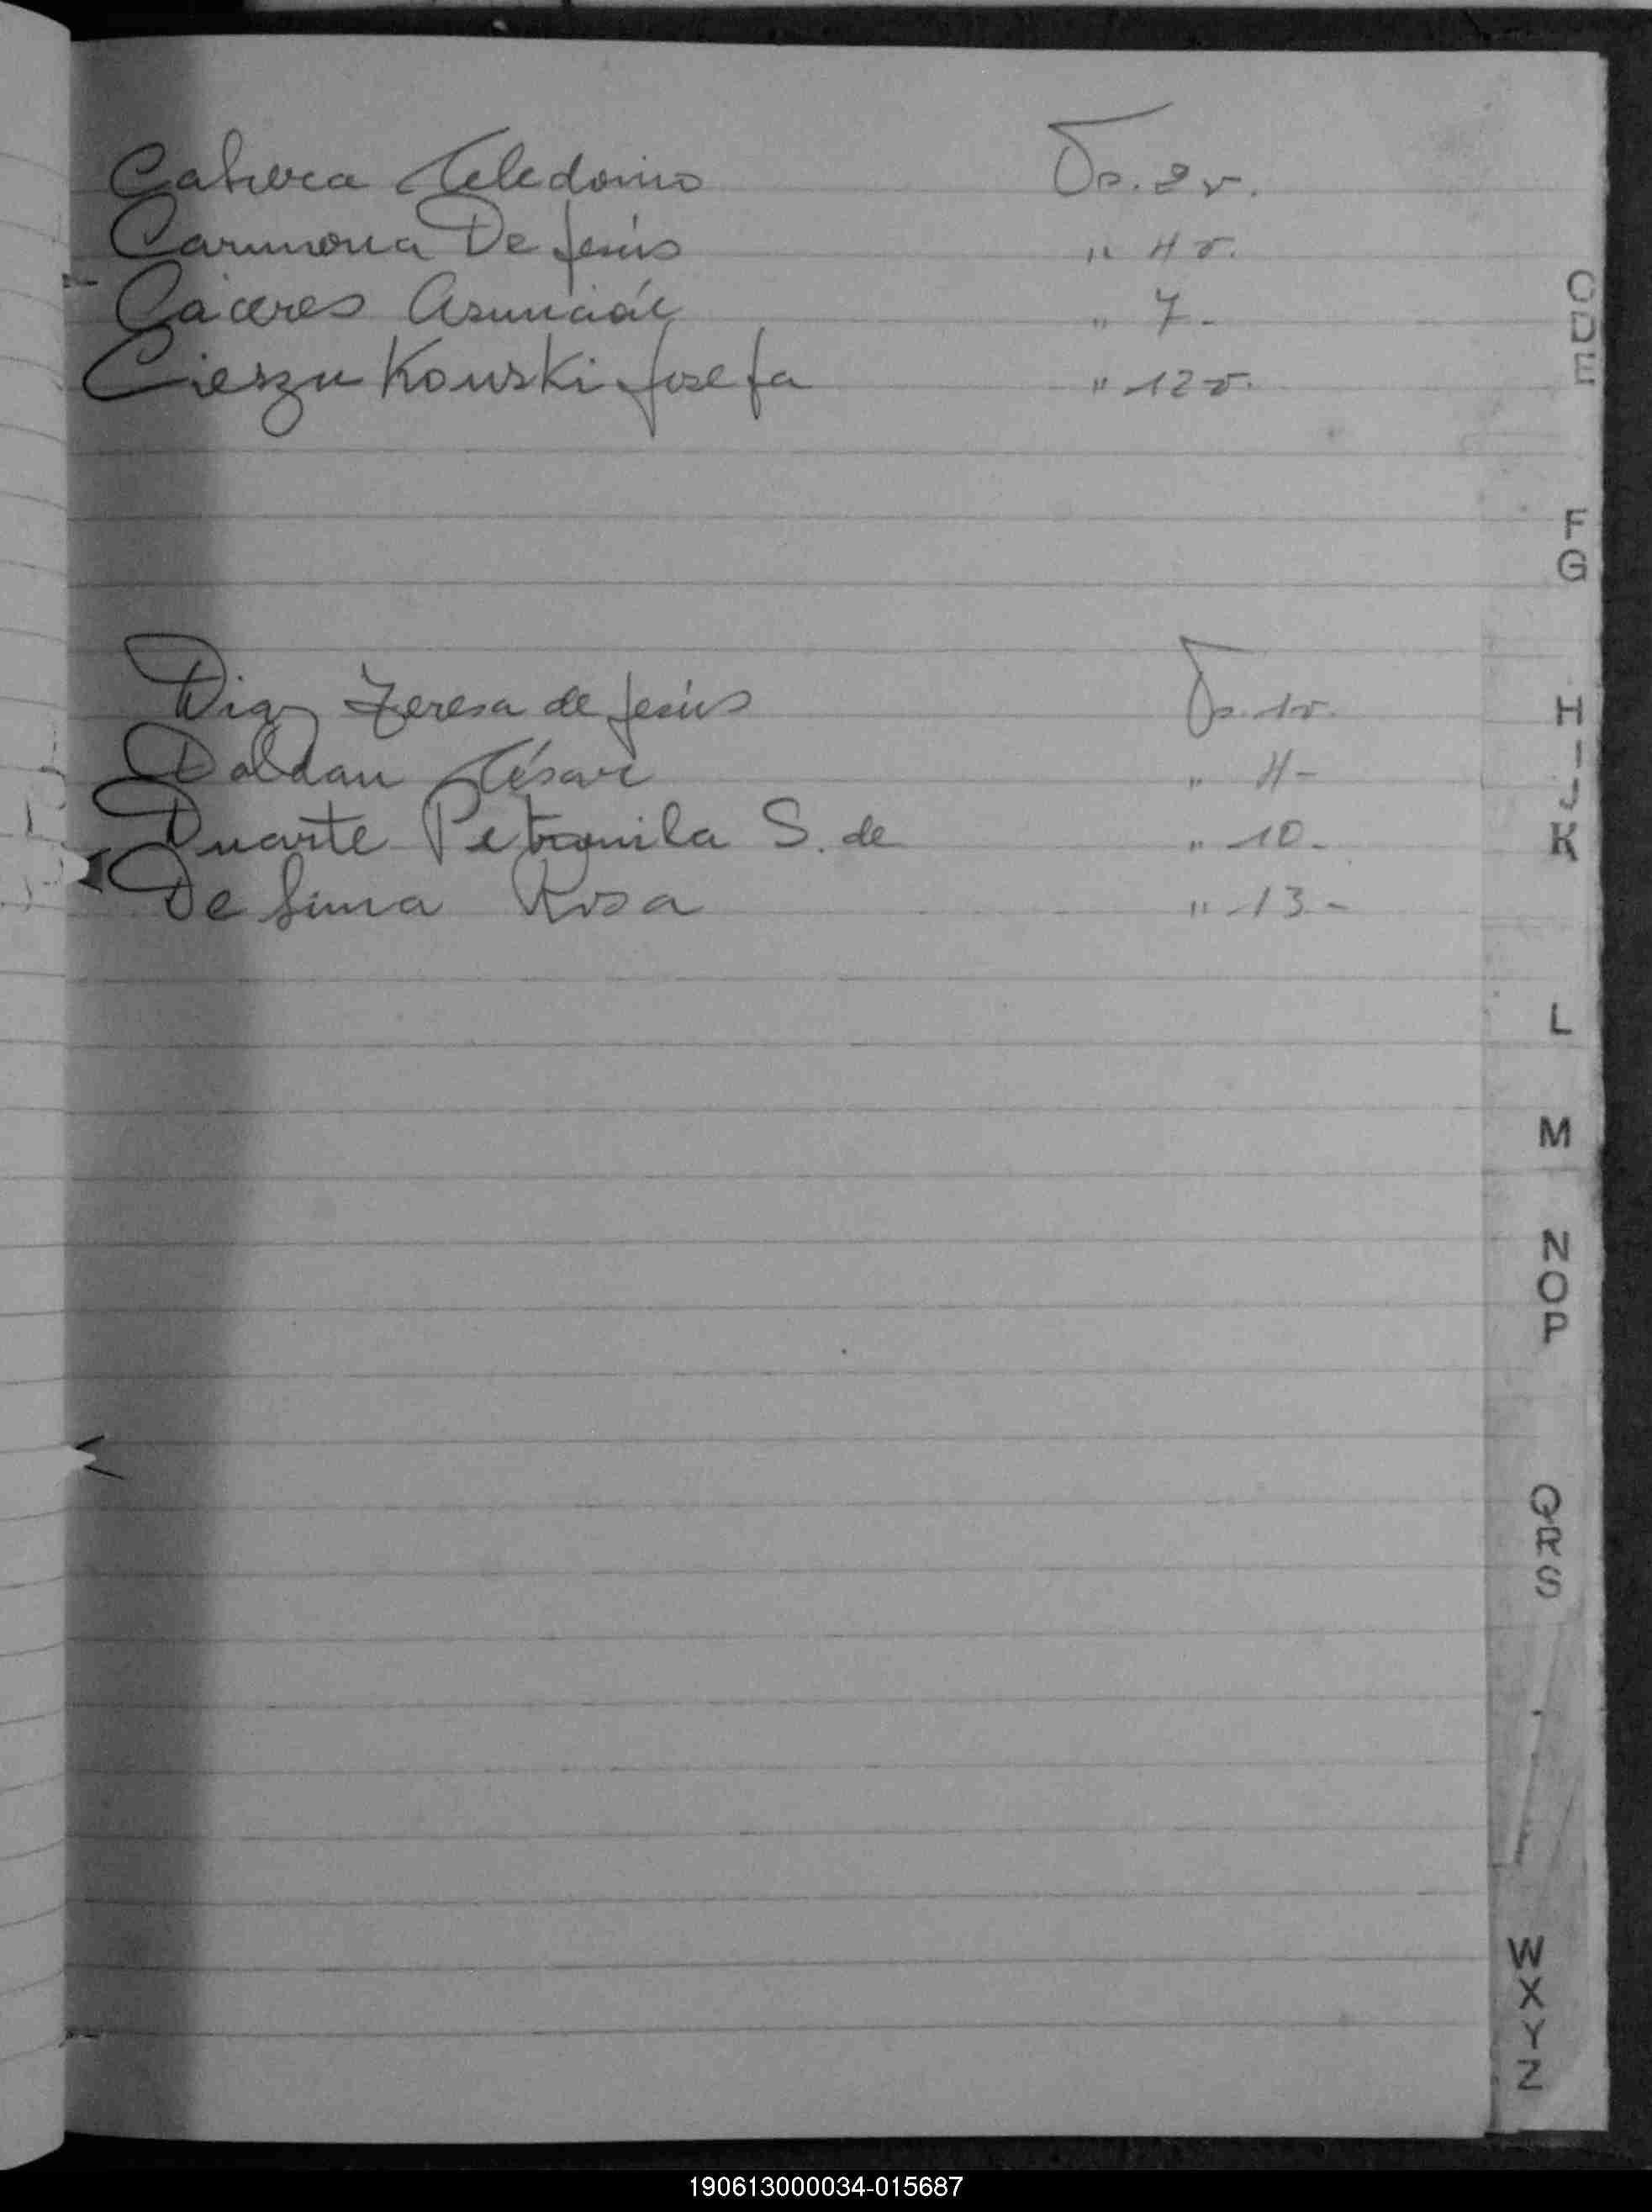 Cabrera Celedonio Fo. 2 v.
Carmona De Jesús " 4 v.
Cáceres Asunción " 7 -
Cieszu Kouski Josefa " 12 v.
Diaz Teresa de Jesús Fo. 1 v.
Doldan César " 4 -
Duarte Petronila S. de " 10 -
De Lima Rosa " 13 -
C
D
E
F
G
H
I
J
K
L
M
N
O
P
Q
R
S
W
X
Y
Z
190613000034-015687